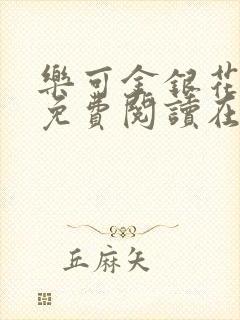 樂可金銀花
免費閱讀在
丘麻矢